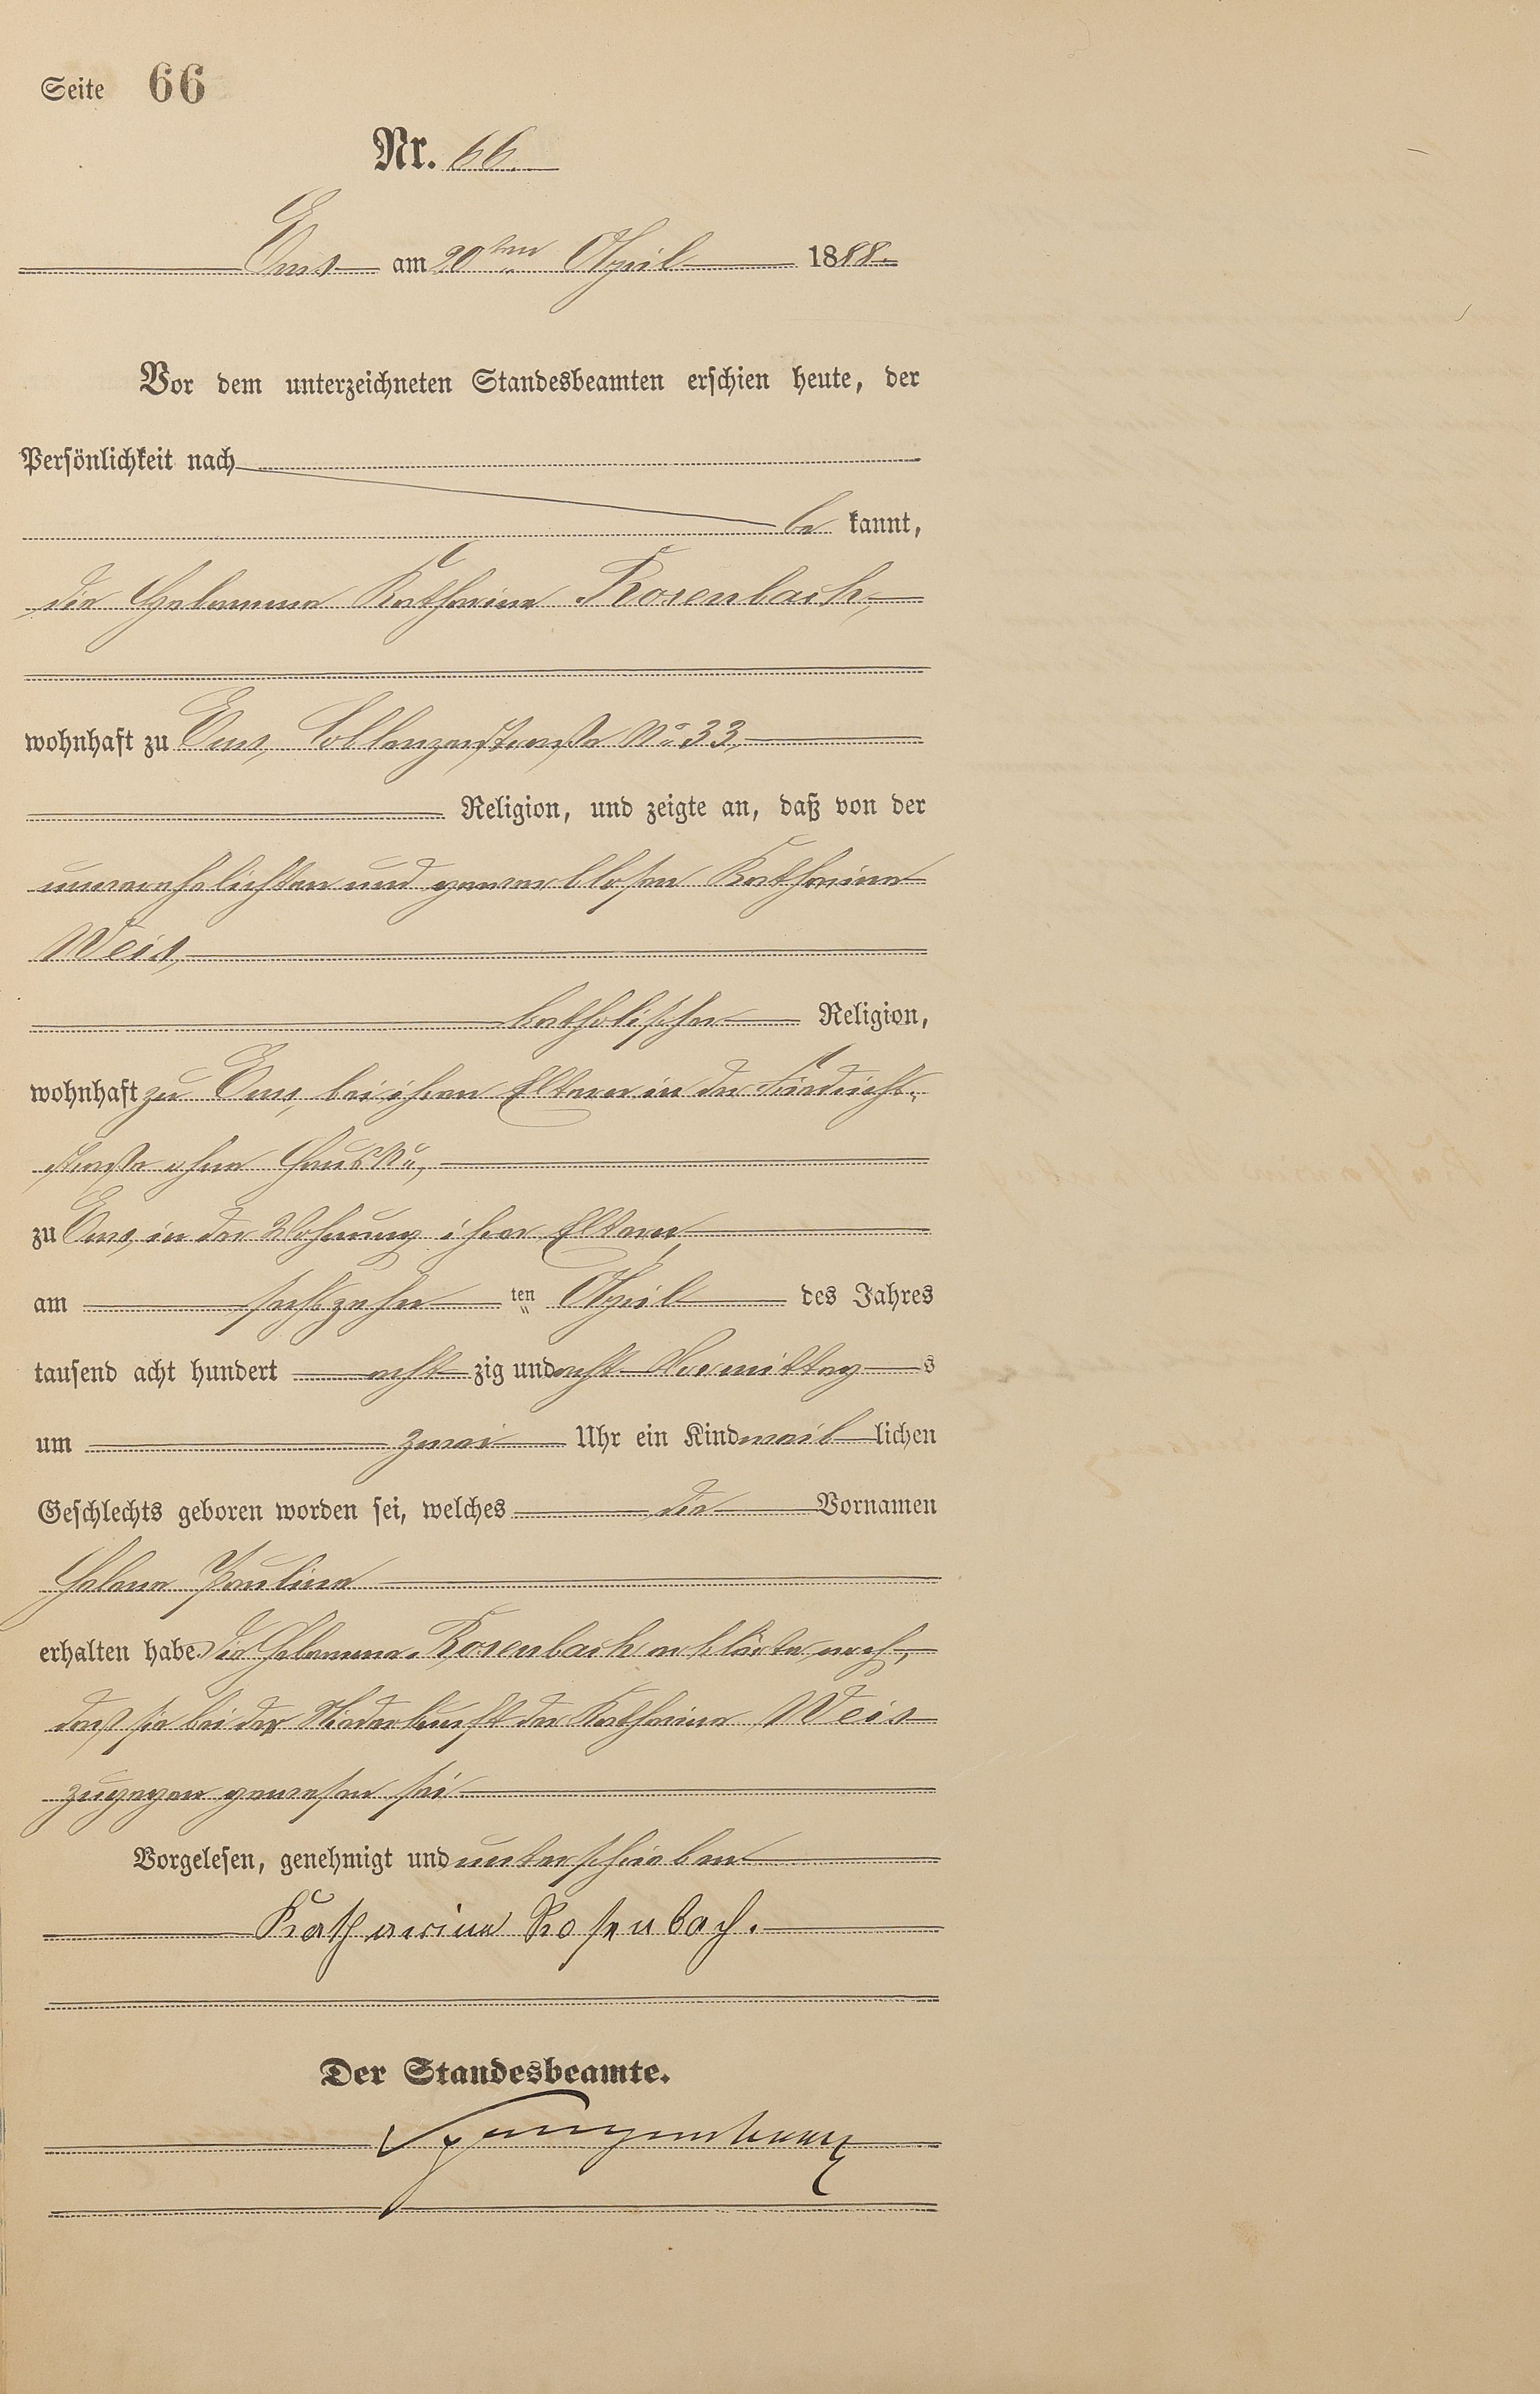 Seite 66
Nr. 66.
Ems am 20ten April 1888.
Vor dem unterzeichneten Standesbeamten erschien heute, der
Persönlichkeit nach
be kannt,
die Hebamme Katharina Rosenbach,
wohnhaft zu Ems, Coblenzerstraße No 33,
Religion, und zeigte an, daß von der
unverehelichten und gewerblosen Katharina
Weis,
katholischer Religion,
wohnhaft zu Ems, bei ihren Eltern in der Friedrich-
straße ohne Haus No,
zu Ems, in der Wohnung ihrer Eltern,
am sechszehnten April des Jahres
tausend acht hundert acht zig und acht Vormittags
um zwei Uhr ein Kind weiblichen
Geschlechts geboren worden sei, welches die Vornamen
Helena Paulina
erhalten habe. Die Hebamme Rosenbach erklärte noch,
daß sie bei der Niederkunft der Katharina Weis
zugegen gewesen sei
Vorgelesen, genehmigt und unterschrieben
Katharina Rosenbach.
Der Standesbeamte.